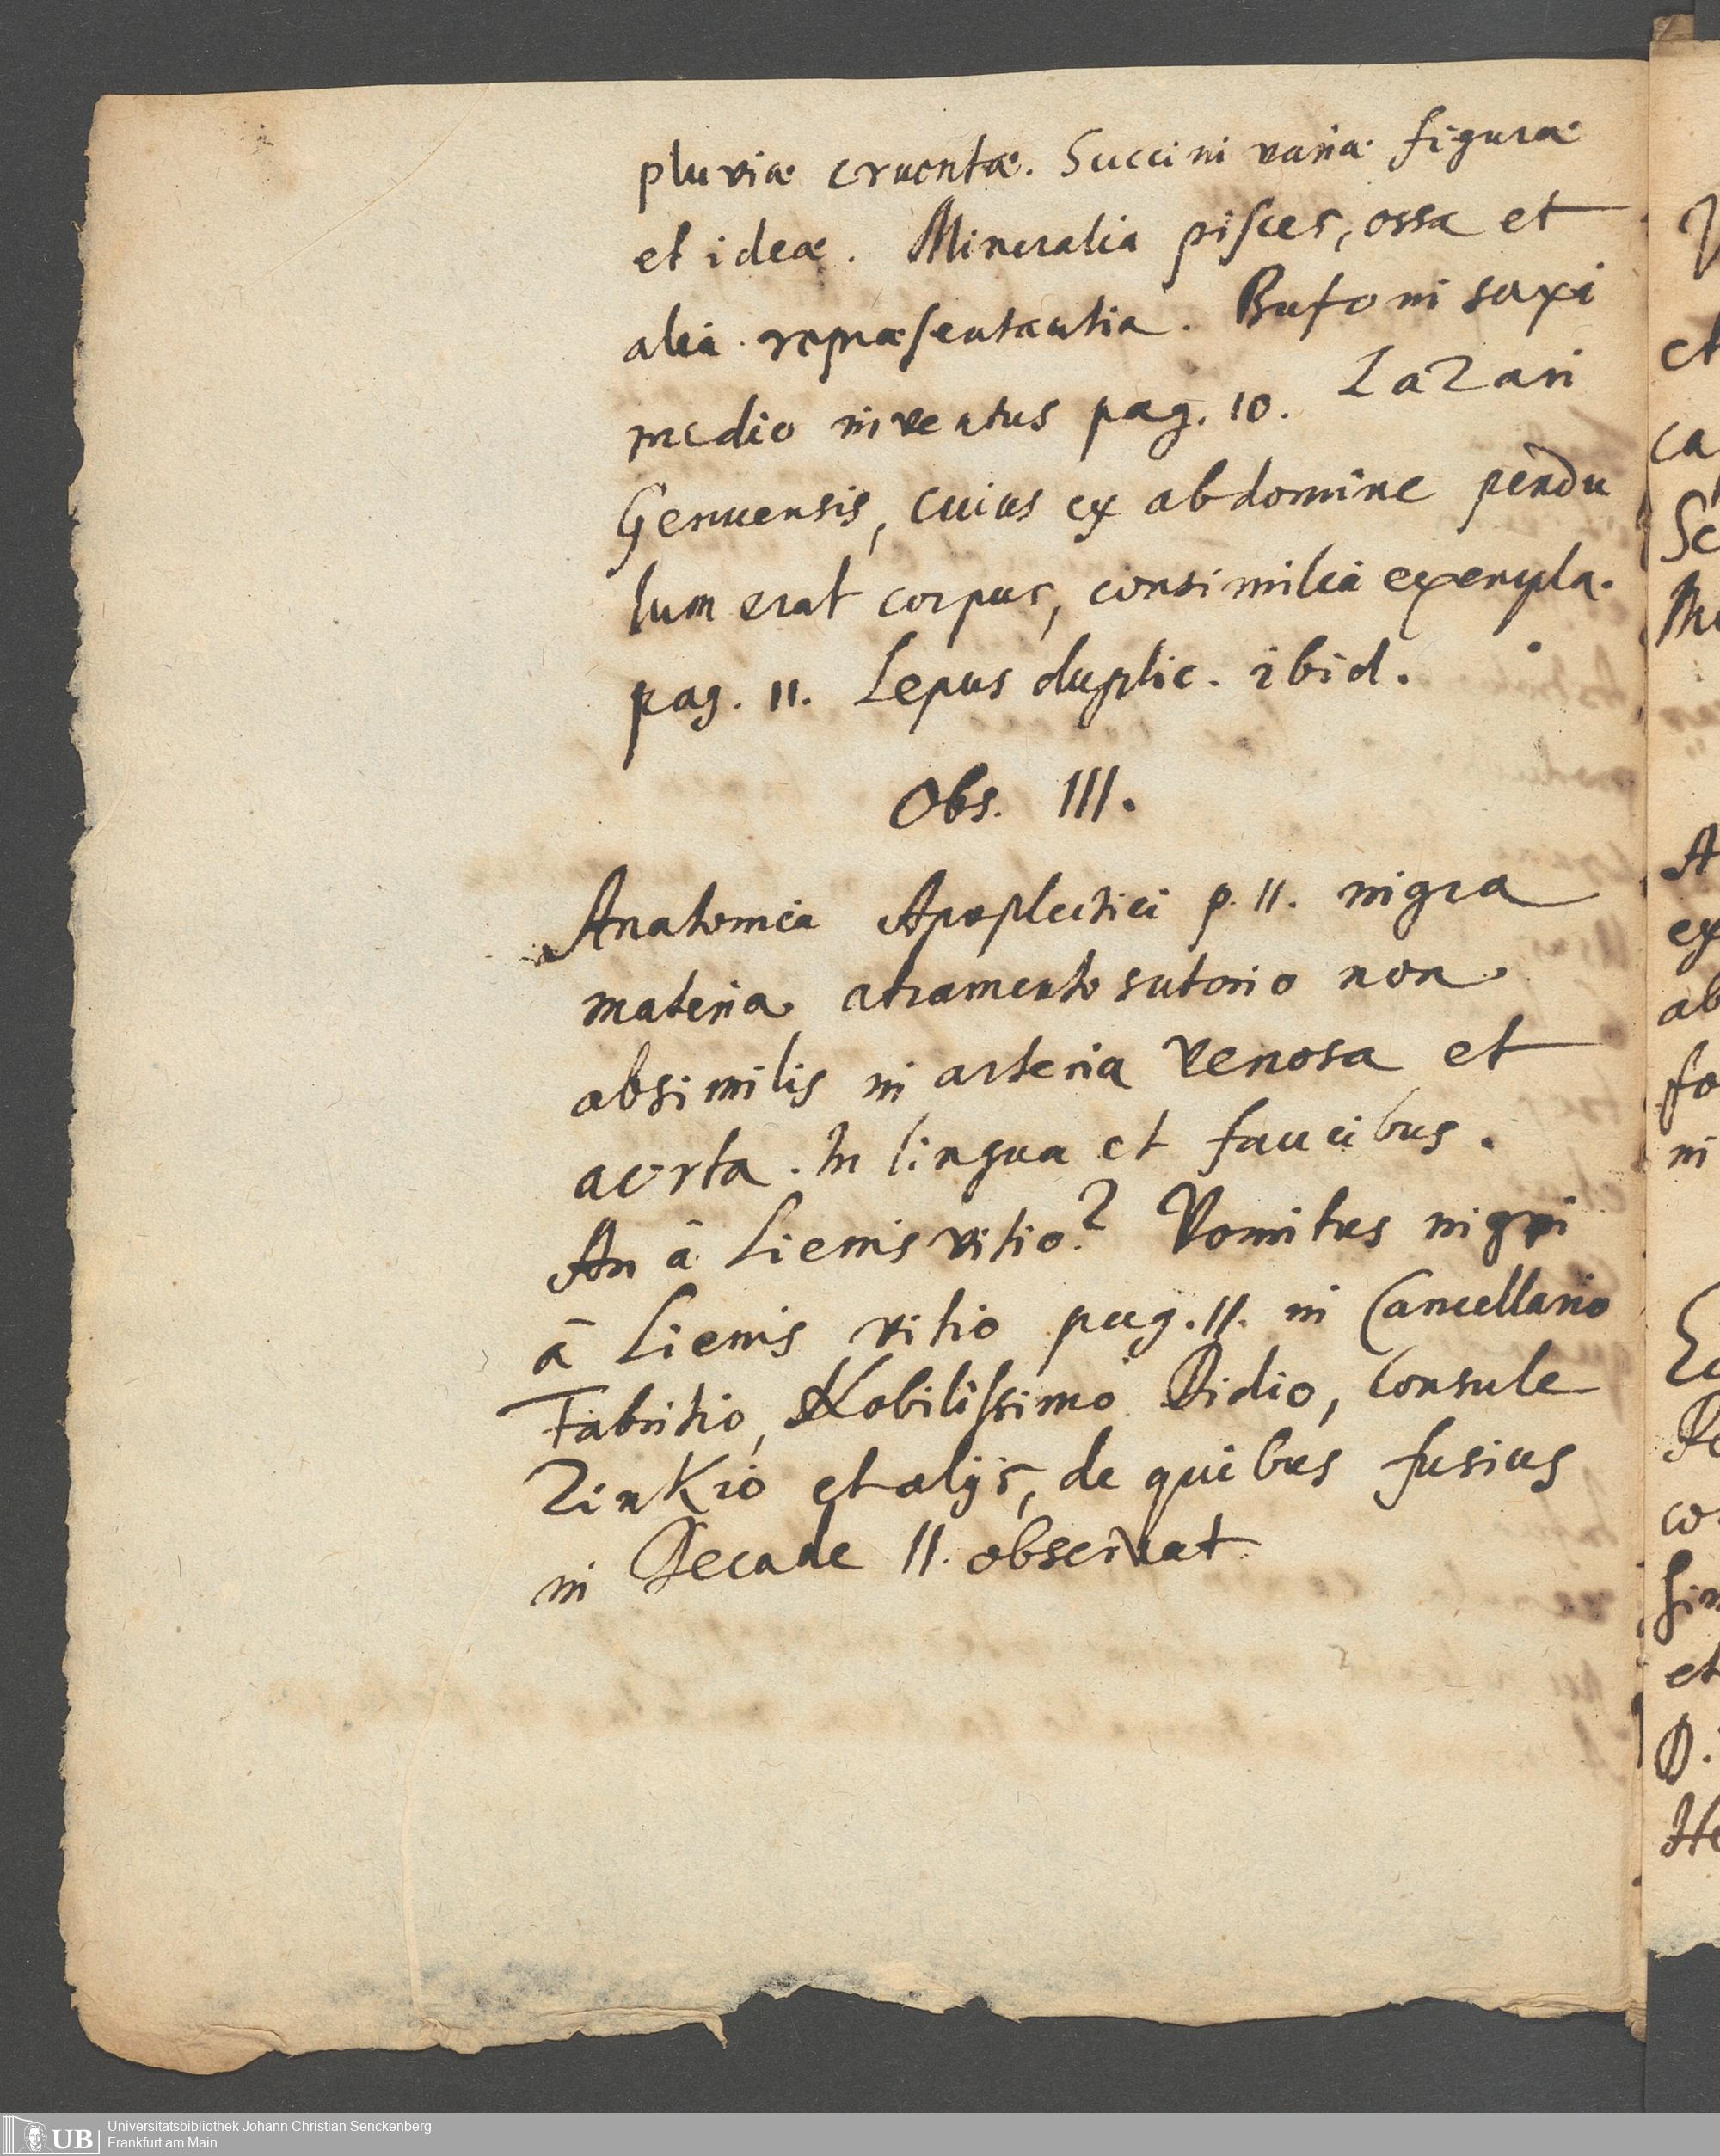 pluviæ cruentæ. Succini variæ figuræ
et ideæ. Mineralia pisces, ossa et
alia repræsentantia. Bufo in saxi
medio inventus pag. 10. Lazari
Genuensis, cuius ex abdomine pendu
lum erat corpus, consimilia exempla.
pag. 11. Lepus duplic. ibid.
Obs. III.
Anatomia Apoplectici p. 11. nigra
materia atramento sutorio non
absimilis in arteria venosa et
aorta. In lingua et faucibus.
An à Lienis vitio? Vomitus nigri
à Lienis vitio pag. 11. in Cancellario
Fabritio, Nobilissimo Didio, Consule
Zinkio et alijs, de quibus fusius
in Decade II. observat
Universitätsbibliothek Johann Christian Senckenberg
Frankfurt am Main
UB